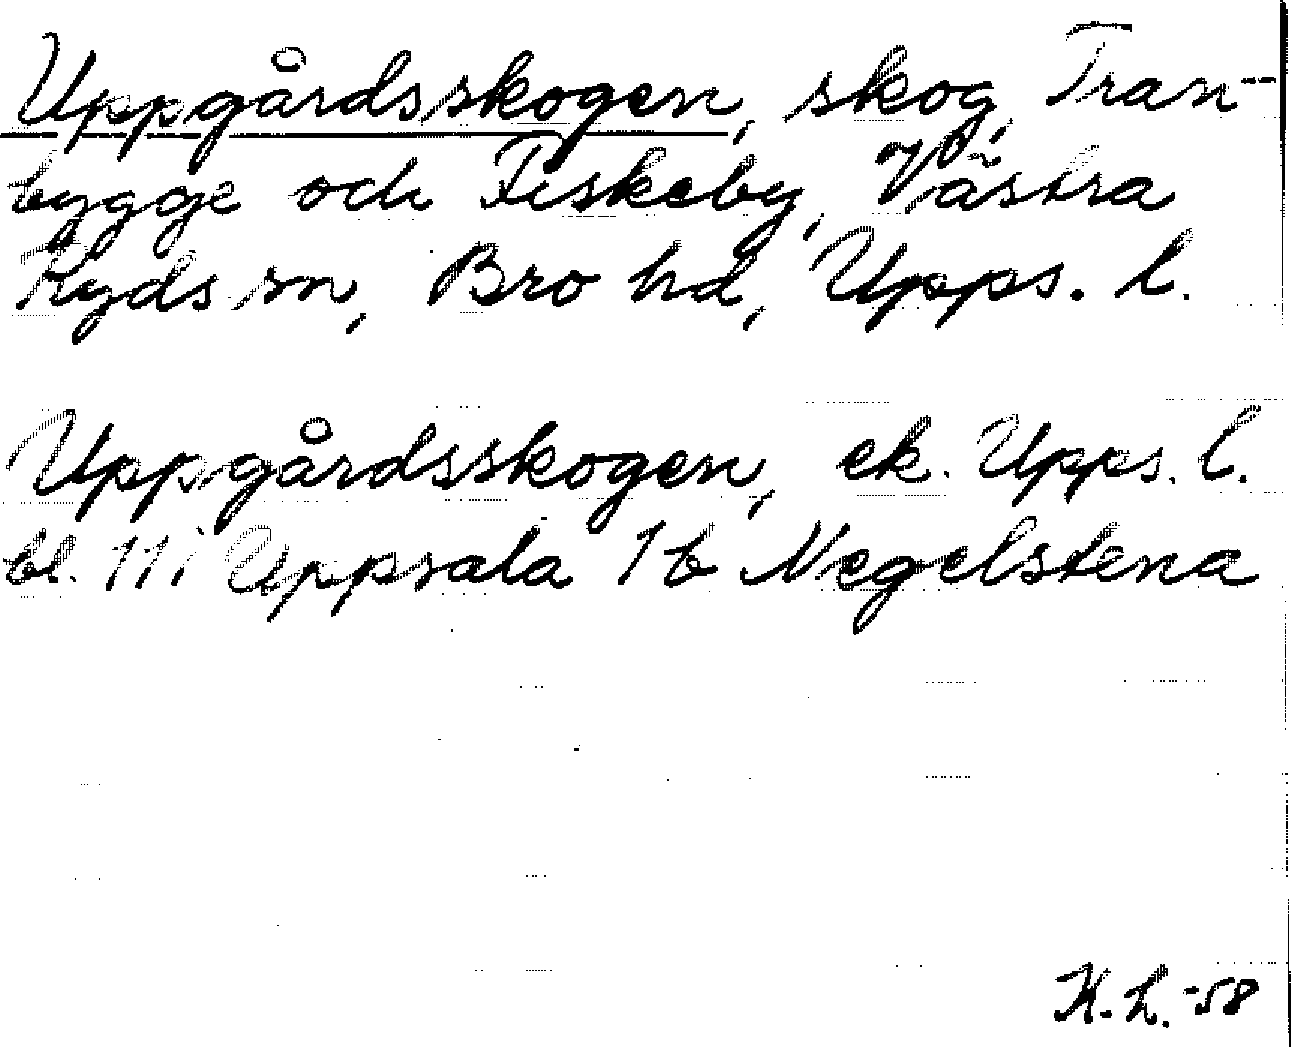 Uppgårdsskogen, skog, Tran-
bygge och Fiskeby, Västra
Ryds sn, Bro hd, Upps. l.
Uppgårdsskogen, ek. Upps. l.
bl. 11 i Uppsala 1 b Negelstena
K. L. -58